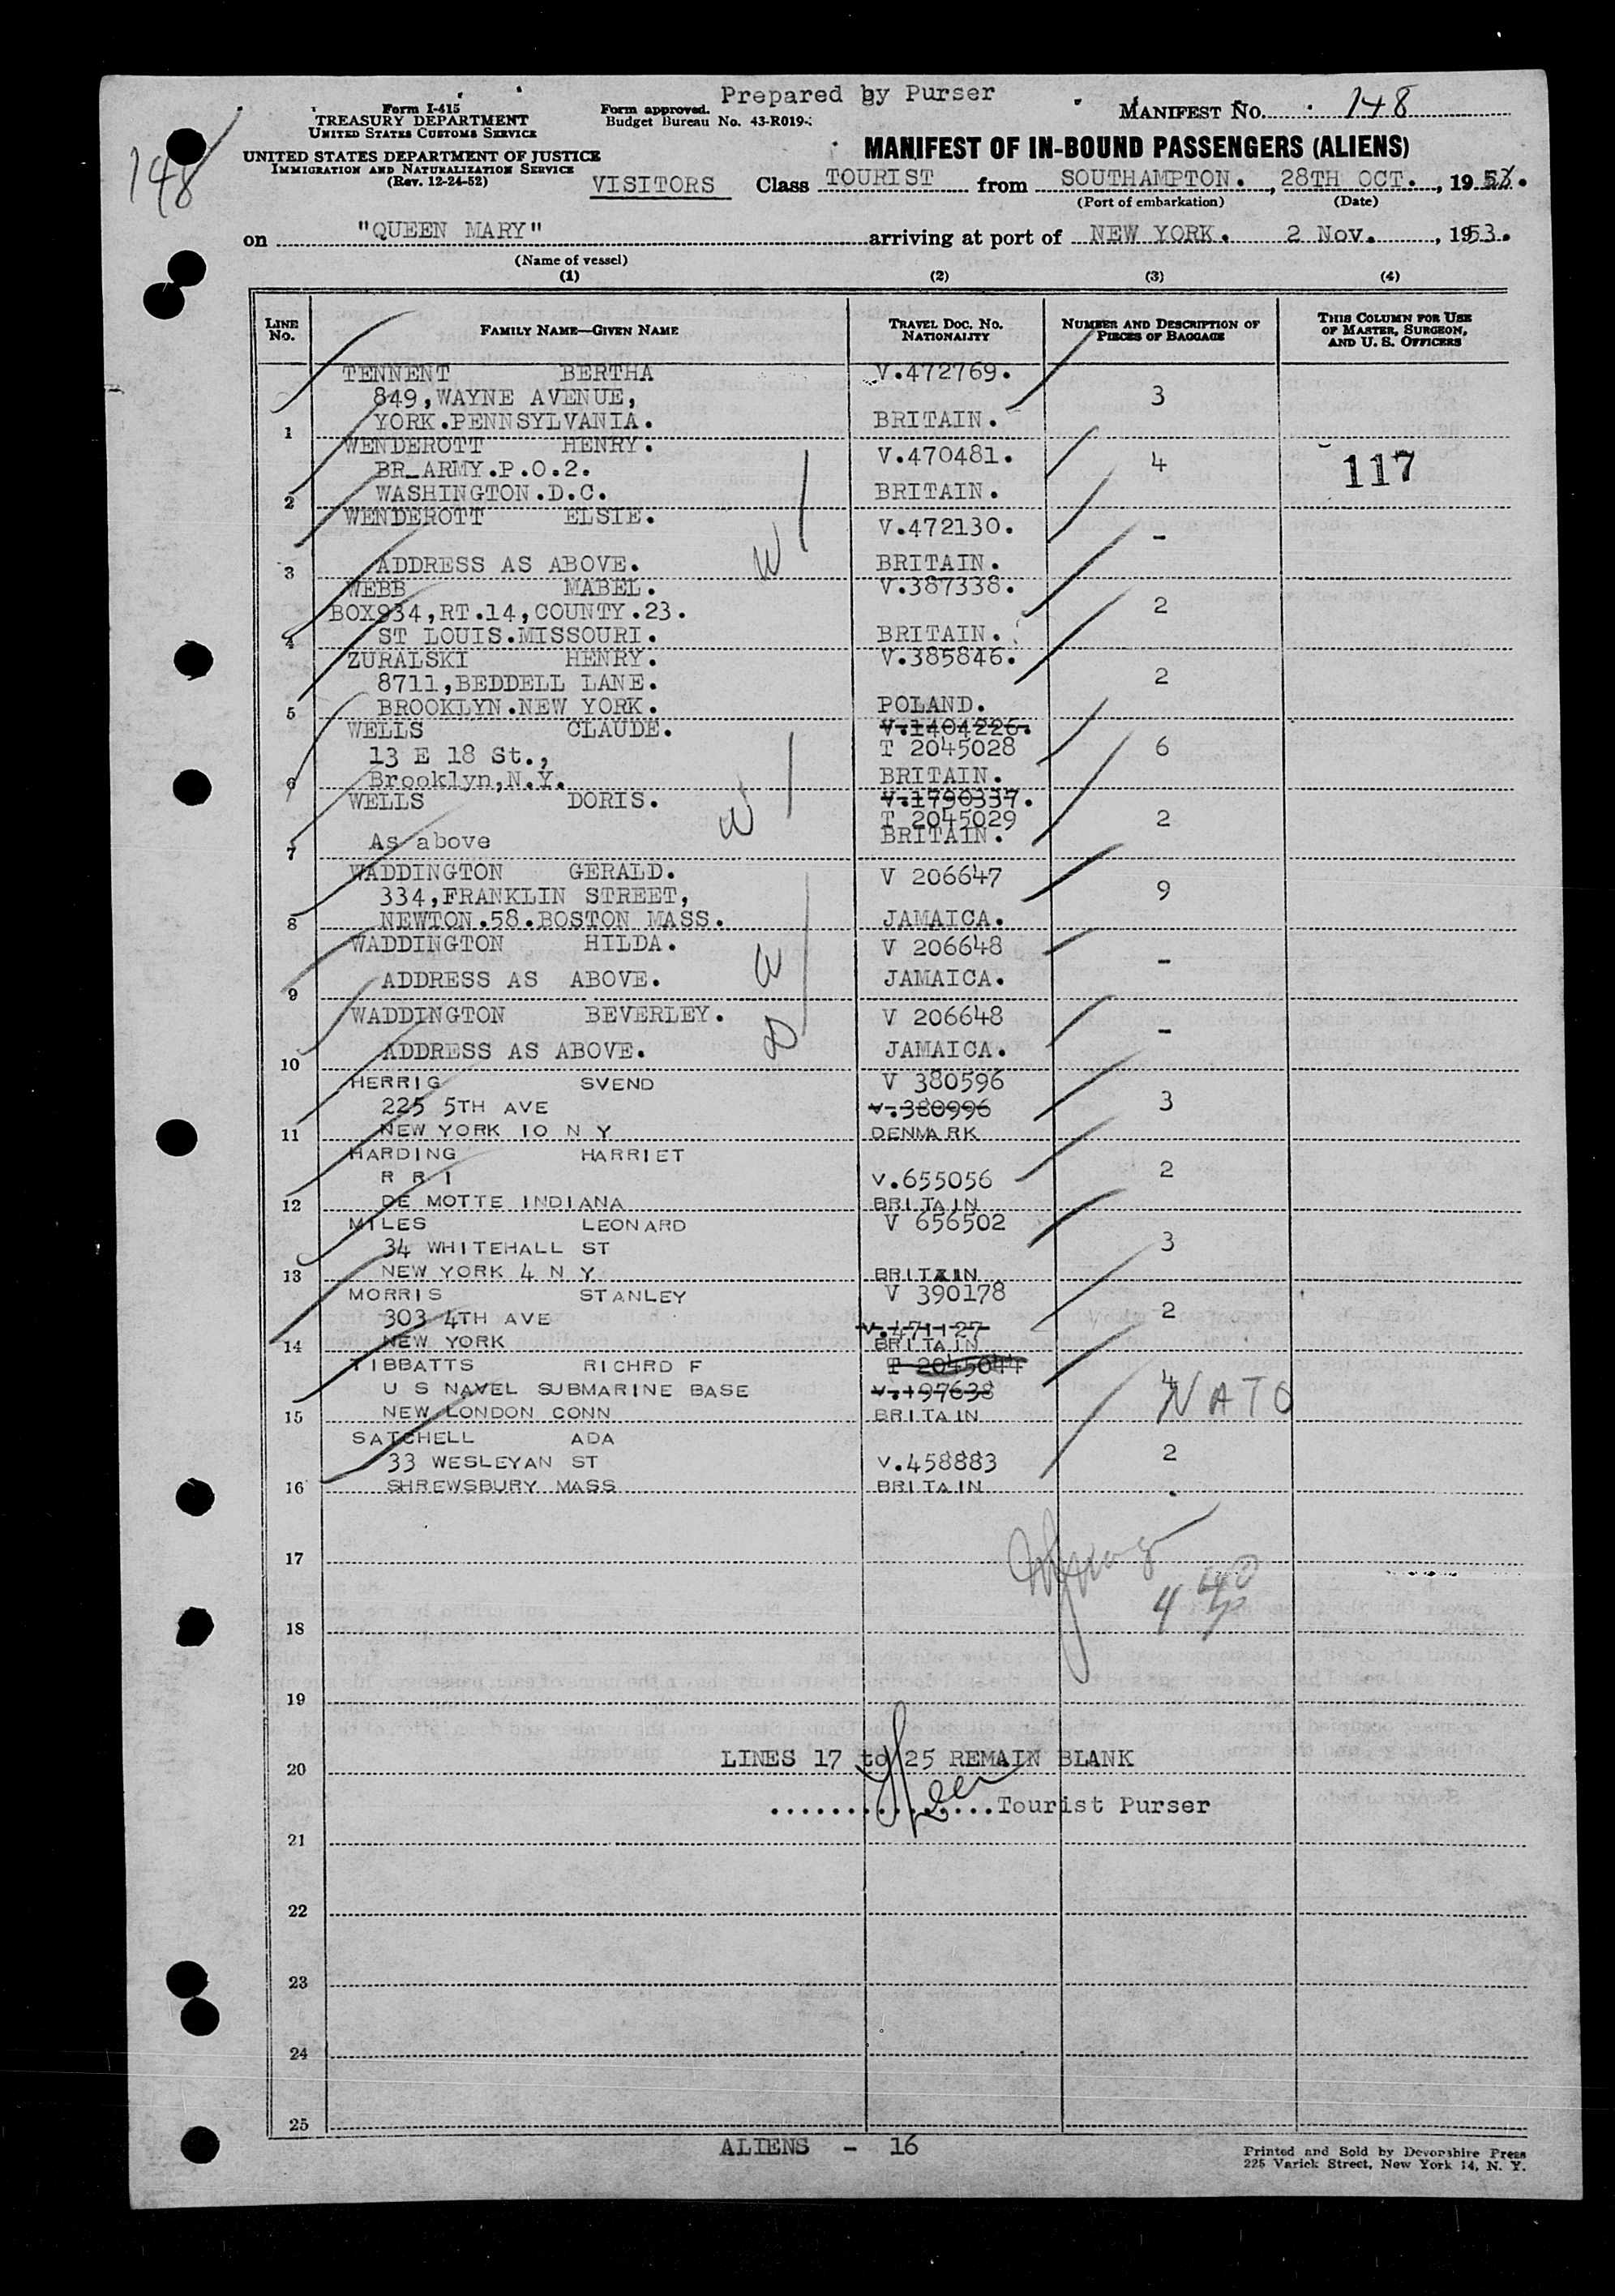 Prepared by Purser
Form I-415
TREASURY DEPARTMENT
UNITED STATES CUSTOMS SERVICE
Form approved.
Budget Bureau No. 43-R019-
MANIFEST NO. 148
148
UNITED STATES DEPARTMENT OF JUSTICE
IMMIGRATION AND NATURALIZATION SERVICE
(Rev. 12-24-52)
MANIFEST OF IN-BOUND PASSENGERS (ALIENS)
VISITORS Class TOURIST from SOUTHAMPTON. , 28TH OCT. , 1953.
(Port of embarkation) (Date)
on "QUEEN MARY" arriving at port of NEW YORK. 2 Nov. , 1953.
(Name of vessel)
(1) (2) (3) (4)
LINE No. FAMILY NAME—GIVEN NAME TRAVEL DOC. NO. NATIONALITY NUMBER AND DESCRIPTION OF PIECES OF BAGGAGE THIS COLUMN FOR USE OF MASTER, SURGEON, AND U. S. OFFICERS
TENNENT BERTHA V.472769.
849,WAYNE AVENUE, 3
1 YORK.PENNSYLVANIA. BRITAIN.
WENDEROTT HENRY. V.470481. 4 117
BR_ARMY.P.O.2.
2 WASHINGTON.D.C. BRITAIN.
WENDEROTT ELSIE. V.472130. -
W
3 ADDRESS AS ABOVE. BRITAIN.
WEBB MABEL. V.387338.
BOX934,RT.14,COUNTY.23. 2
4 ST LOUIS.MISSOURI. BRITAIN.
ZURALSKI HENRY. V.385846.
8711,BEDDELL LANE. 2
5 BROOKLYN.NEW YORK. POLAND.
WELLS CLAUDE. V.1404226.
13 E 18 St., T 2045028 6
6 Brooklyn,N.Y. BRITAIN.
WELLS DORIS. V.1790337.
W T 2045029 2
7 As above BRITAIN.
WADDINGTON GERALD. V 206647
334,FRANKLIN STREET, 9
8 NEWTON.58.BOSTON MASS. JAMAICA.
WADDINGTON HILDA. V 206648
W -
9 ADDRESS AS ABOVE. JAMAICA.
WADDINGTON BEVERLEY. V 206648
D -
10 ADDRESS AS ABOVE. JAMAICA.
HERRIG SVEND V 380596
225 5TH AVE V.380996 3
11 NEW YORK 10 N Y DENMARK
HARDING HARRIET
R R 1 V.655056 2
12 DE MOTTE INDIANA BRITAIN
MILES LEONARD V 656502
34 WHITEHALL ST 3
13 NEW YORK 4 N Y BRITAIN
MORRIS STANLEY V 390178
303 4TH AVE V.471127 2
14 NEW YORK BRITAIN
TIBBATTS RICHRD F T 2045044
U S NAVEL SUBMARINE BASE V.197638 4 NATO
15 NEW LONDON CONN BRITAIN
SATCHELL ADA
33 WESLEYAN ST V.458883 2
16 SHREWSBURY MASS BRITAIN
17
18
19
20 LINES 17 to 25 REMAIN BLANK
................Tourist Purser
21
22
23
24
25
ALIENS - 16
Printed and Sold by Devonshire Press
225 Varick Street, New York 14, N. Y.